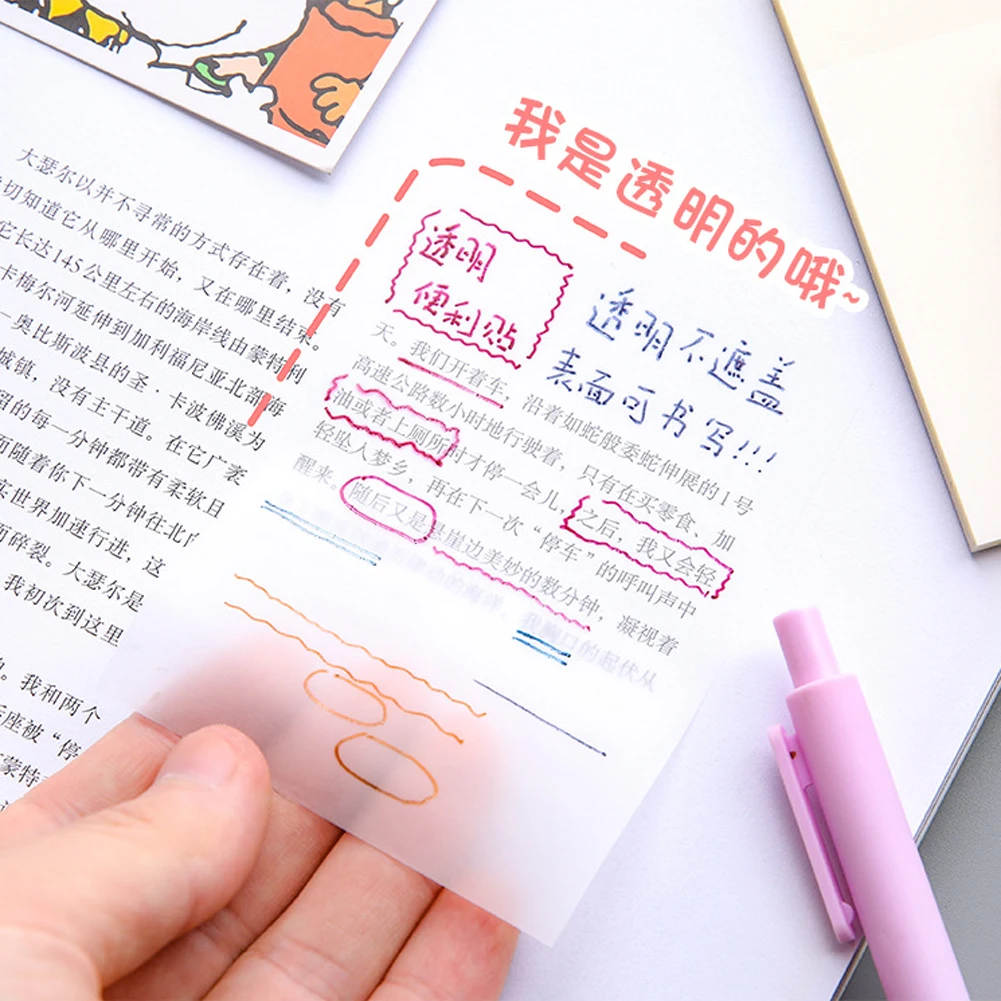 我是透明的哦~
透明
便利贴
透明不遮盖
表面可书写!!!
大瑟尔以并不寻常的方式存在着，没有
切知道它从哪里开始，又在哪里结束。
它长达145公里左右的海岸线由蒙特利
卡梅尔河延伸到加利福尼亚北部海
奥比斯波县的圣·卡波佛溪为
城镇，没有主干道。在它广袤
的每一分钟都带有柔软且
而随着你下一分钟往北
世界加速行进，这
而碎裂。大瑟尔是
我初次到这里
。我和两个
座被“停
蒙特
天。我们开着车，沿着如蛇般委蛇伸展的1号
高速公路数小时地行驶着，只有在买零食、加
油或者上厕所时才停一会儿，之后，我又会轻
轻坠入梦乡，再在下一次“停车”的呼叫声中
醒来，随后又是悬崖边美妙的数分钟，凝视着
的起伏从